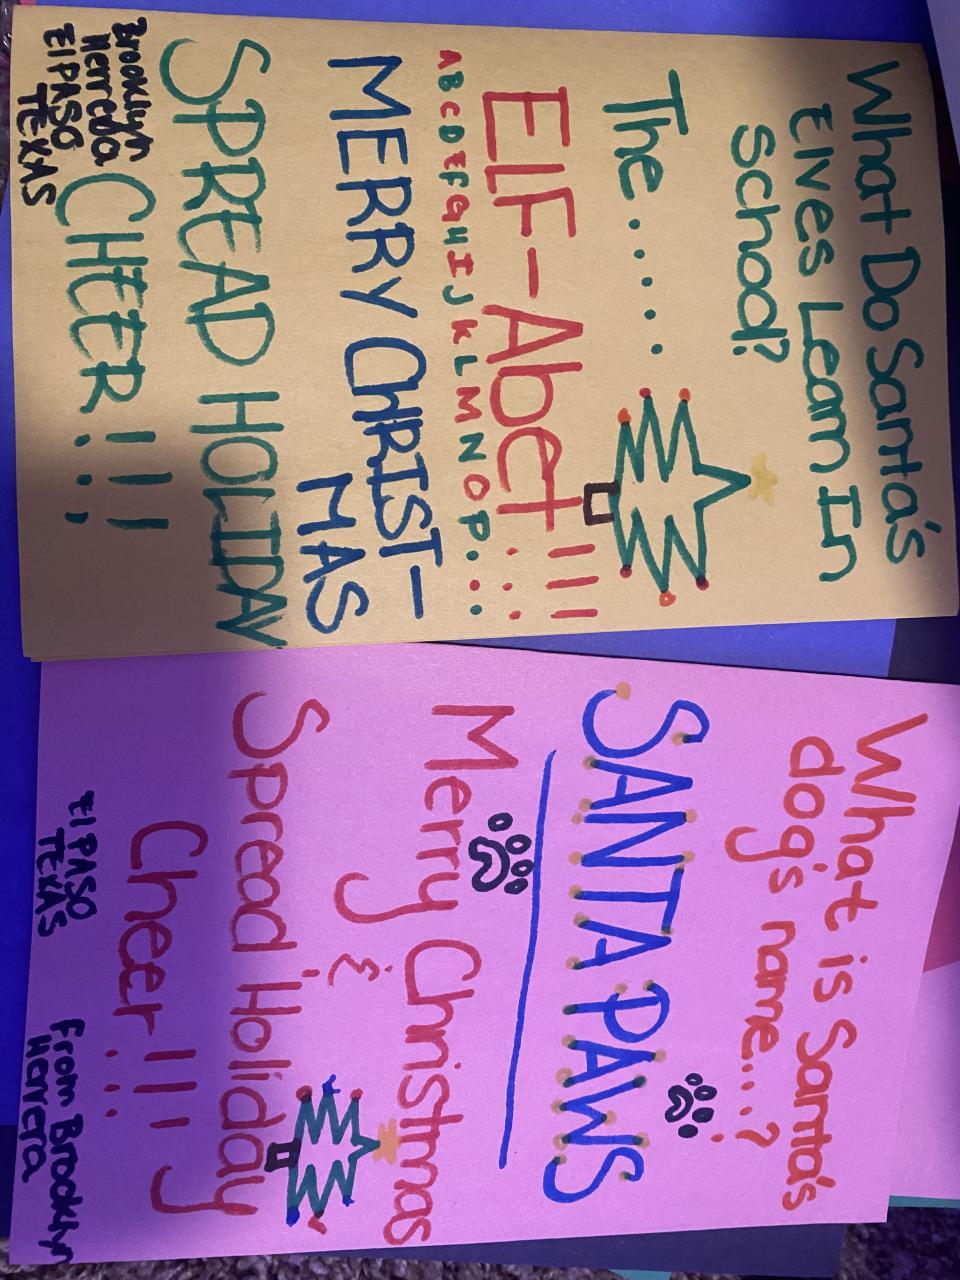 What Do Santa's
Elves Learn In
School?
The.....
ElF-Abet!!!
A B C D E F G H I J K L M N O P...
MERRY CHRIST-
MAS
SPREAD HOLIDAY
CHEER!!!
Brooklyn
Herrera
El PASO
TEXAS
What is Santa's
dog's name....?
SANTA PAWS
Merry Christmas
&
Spread Holiday
Cheer!!!
El PASO
TEXAS
From Brooklyn
Herrera